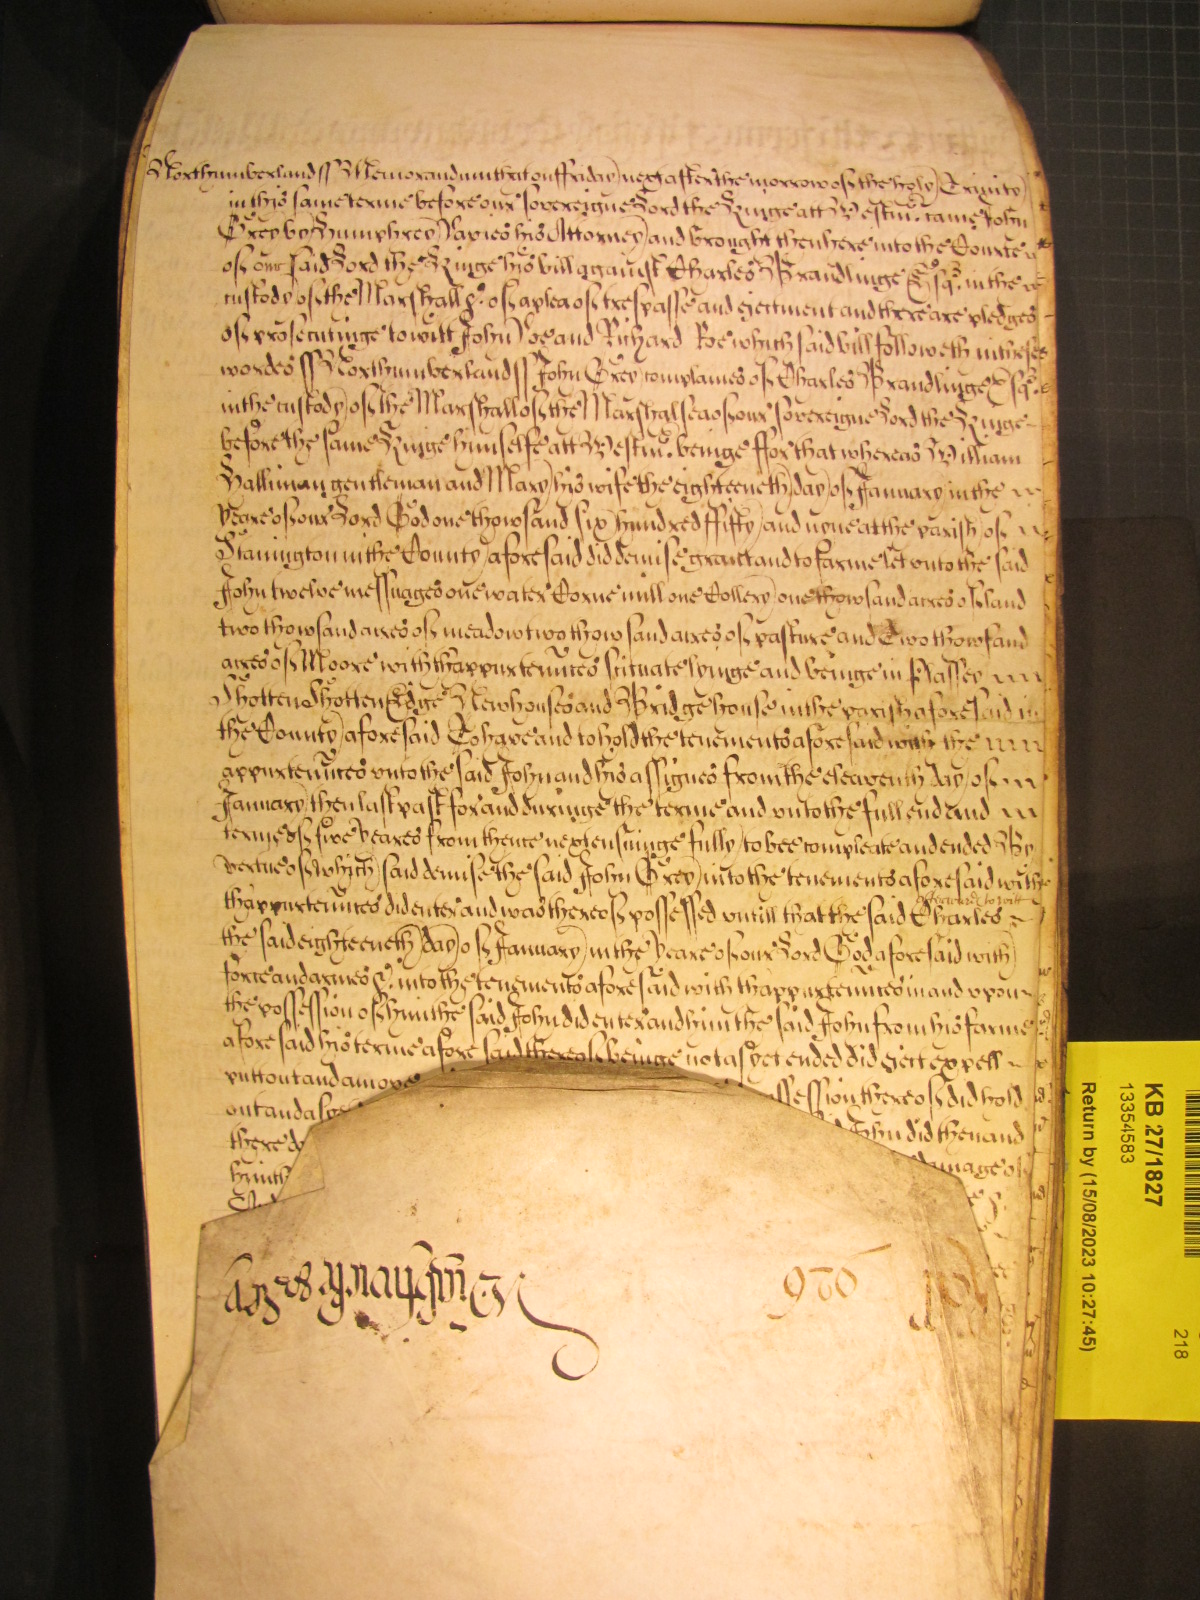 Northumberland ss Memorandum that on ffriday next after the morrow of the holy Trinity
in this same terme before our sovereigne Lord the Kinge att Westm̄. came John
Grey by Humphrey Davies his Attorney and brought then here into the Courte
of our said Lord the Kinge his bill against Charles Brandlinge Esq̄. in the
custody of the Marshall &c. of a plea of trespasse and ejectment and there are pledges
of prosecutinge to witt John Doe and Richard Roe which said bill followeth in these
wordes ss Northumberland ss John Grey complaines of Charles Brandlinge Esq̄.
in the custody of the Marshall of the Marshalsea of our sovereigne Lord the Kinge
before the same Kinge himselfe att Westm̄. beinge ffor that whereas William
Halliman gentleman and Mary his wife the eighteeneth day of January in the
yeare of our Lord God one thowsand six hundred ffifty and nyne at the parish of
Stanington in the County aforesaid did demise graunt and to farme let unto the said
John twelve messuages one water Corne mill one Collery one thowsand acres of land
two thowsand acres of meadow two thowsand acres of pasture and Two thowsand
acres of Moore with thappurtenn̄ces scituate lyinge and beinge in Plassey
Shotten Shotten Edge Newhouses and Bridge house in the parish aforesaid in
the County aforesaid To have and to hold the tenements aforesaid with the
appurtenn̄ces unto the said John and his assignes from the eleaventh day of
January then last past for and duringe the terme and unto the full end and
terme of five yeares from thence next ensuinge fully to bee compleate and ended By
vertue of which said demise the said John Grey into the tenements aforesaid with
thappurtenn̄ces did enter and was thereof possessed untill that the said Charles
afterward to witt
the said eighteeneth day of January in the yeare of our Lord God aforesaid with
force and armes &c. into the tenements aforesaid with thappurtenn̄ces in and upon
the possession of him the said John did enter and him the said John from his farme
aforesaid his terme aforesaid thereof beinge not as yet ended did eject expell
putt out and amove
possession thereof did hold
out and
John did then and
there
damage of
him the
KB 27/1827
13354583
Return by (15/08/2023 10:27:45)
218